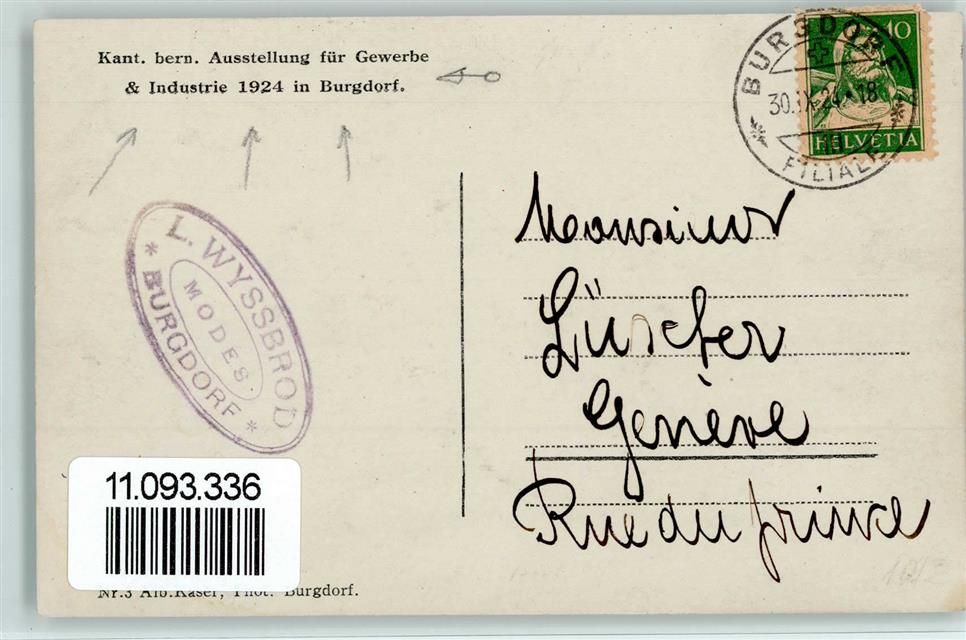 Kant. bern. Ausstellung für Gewerbe
& Industrie 1924 in Burgdorf.
BURGDORF
30.IX.24 18
FILIALE
10
HELVETIA
L. WYSSBROD
MODES.
* BURGDORF *
Monsieur
Lüscher
Genève
Rue du prince
11.093.336
Nr.3 Alb.Käser, Phot. Burgdorf.